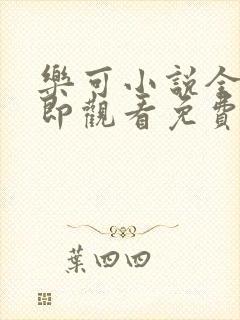 樂可小說全
即觀看免費
葉四四